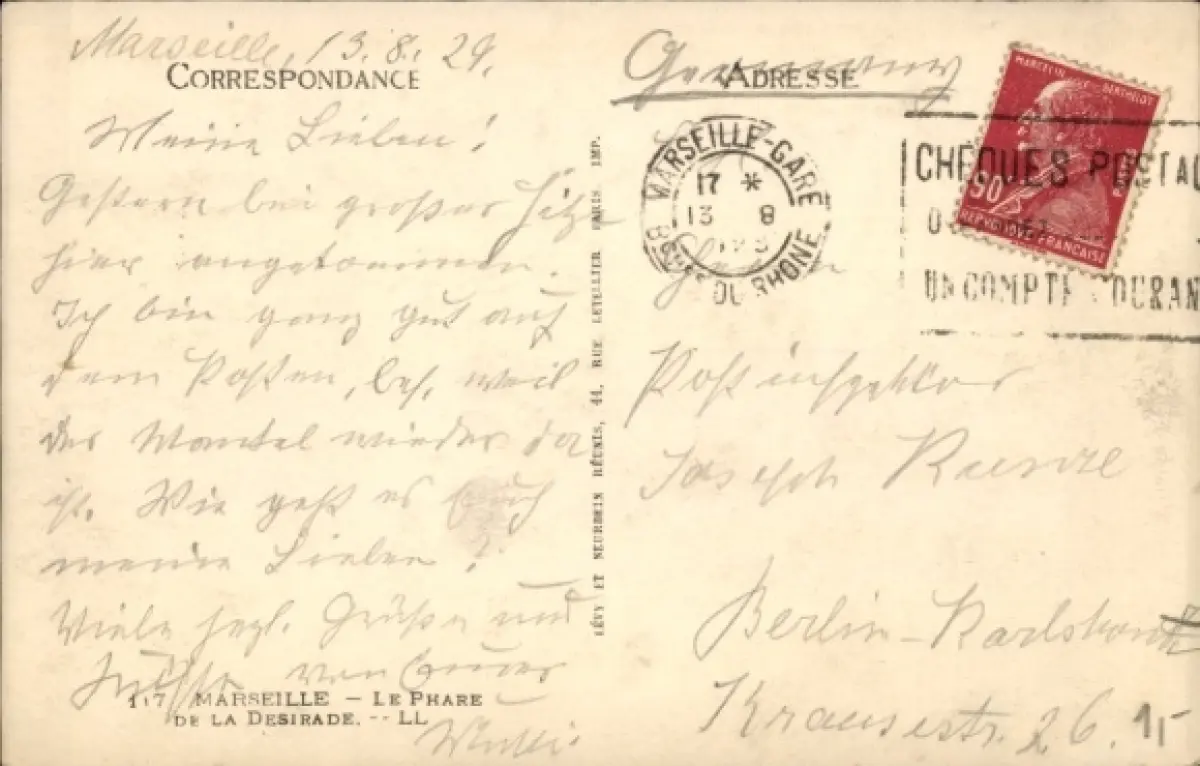 Marseille, 13. 8. 29.
CORRESPONDANCE
Meine Lieben!
Gestern bei großer Hitze
hier angekommen.
Ich bin ganz gut auf
dem Posten, bes. weil
der Mantel wieder da
ist. Wie geht es Euch
meine Lieben?
Viele herzl. Grüße und
Küsse von Eurer
117 MARSEILLE - LE PHARE
DE LA DESIRADE. -- LL
LÉVY ET NEURDEIN RÉUNIS, 44, RUE LETELLIER PARIS IMP.
ADRESSE
Germany
MARCELIN BERTHELOT
POSTES
90c
REPUBLIQUE FRANÇAISE
MARSEILLE-GARE
17 *
13 8
BCHES DU RHONE
CHÈQUES POSTAU
UN COMPTE COURAN
Herrn
Postinspektor
Joseph Kunze
Berlin-Karlshorst
Krausestr. 26.
1,-